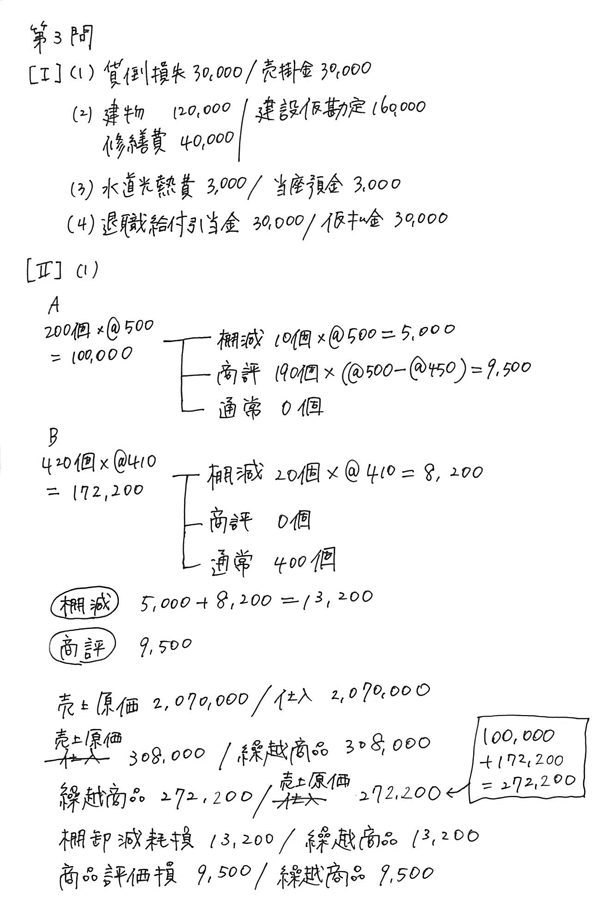 第3問
[I] (1) 貸倒損失 30,000 / 売掛金 30,000
(2) 建物 120,000 / 建設仮勘定 160,000
修繕費 40,000
(3) 水道光熱費 3,000 / 当座預金 3,000
(4) 退職給付引当金 30,000 / 仮払金 30,000
[II] (1)
A
200個×@500
= 100,000
棚減 10個×@500=5,000
商評 190個×(@500-@450)=9,500
通常 0個
B
420個×@410
= 172,200
棚減 20個×@410=8,200
商評 0個
通常 400個
棚減 5,000+8,200=13,200
商評 9,500
売上原価 2,070,000 / 仕入 2,070,000
売上原価
仕入 308,000 / 繰越商品 308,000
売上原価
繰越商品 272,200 / 仕入 272,200
100,000
+172,200
=272,200
棚卸減耗損 13,200 / 繰越商品 13,200
商品評価損 9,500 / 繰越商品 9,500